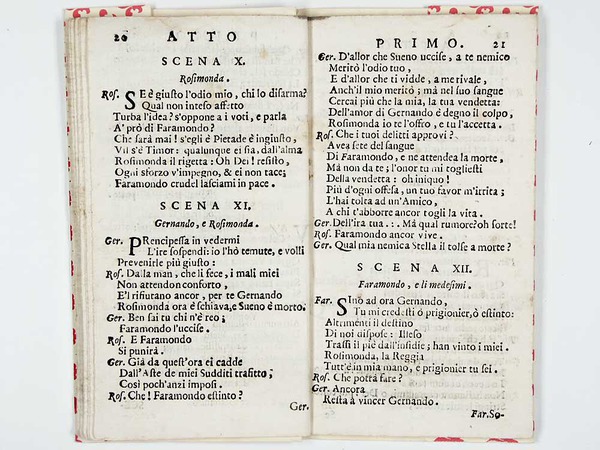 20 ATTO
SCENA X.
Rosimonda.
Ros. SE è giusto l'odio mio, chi lo disarma?
Qual non inteso affetto
Turba l'idea? s'oppone a i voti, e parla
A' prò di Faramondo?
Che sarà mai! s'egli è Pietade è ingiusto,
Vil s'è Timor: qualunque ei sia, dall'alma
Rosimonda il rigetta: Oh Dei! resisto,
Ogni sforzo v'impegno, & ei non tace;
Faramondo crudel lasciami in pace.
SCENA XI.
Gernando, e Rosimonda.
Ger. PRencipessa in vedermi
L'ire sospendi: io l'hò temute, e volli
Prevenirle più giusto:
Ros. Dalla man, che li fece, i mali miei
Non attendon conforto,
E'l rifiutano ancor, per te Gernando
Rosimonda ora è schiava, e Sueno è morto.
Ger. Ben sai tu chi n'è reo;
Faramondo l'uccise.
Ros. E Faramondo
Si punirà.
Ger. Già da quest'ora ei cadde
Dall'Aste de miei Sudditi trafitto;
Così poch'anzi imposi.
Ros. Che! Faramondo estinto?
Ger.
PRIMO. 21
Ger. D'allor che Sueno uccise, a te nemico
Meritò l'odio tuo,
E d'allor che ti vidde, a me rivale,
Anch'il mio meritò; mà nel suo sangue
Cercai più che la mia, la tua vendetta:
Dell'amor di Gernando è degno il colpo,
Rosimonda io te l'offro, e tu l'accetta.
Ros. Che i tuoi delitti approvi?
Avea sete del sangue
Di Faramondo, e ne attendea la morte,
Mà non da te; l'onor tu mi togliesti
Della vendetta: oh iniquo!
Più d'ogni offesa, un tuo favor m'irrita;
L'hai tolta ad un'Amico,
A chi t'abborre ancor togli la vita.
Ger. Dell'ira tua .:. Mà qual rumore? oh sorte!
Ros. Faramondo ancor vive.
Ger. Qual mia nemica Stella il tolse a morte?
SCENA XII.
Faramondo, e li medesimi.
Far. SIno ad ora Gernando,
Tu mi credesti ò prigionier, ò estinto:
Altrimenti il destino
Di noi dispose: Illeso
Trassi il piè dall'insidie; han vinto i miei.
Rosimonda, la Reggia
Tutt'è in mia mano, e prigionier tu sei.
Ros. Che potrà fare?
Ger. Ancora
Resta à vincer Gernando.
Far. So-